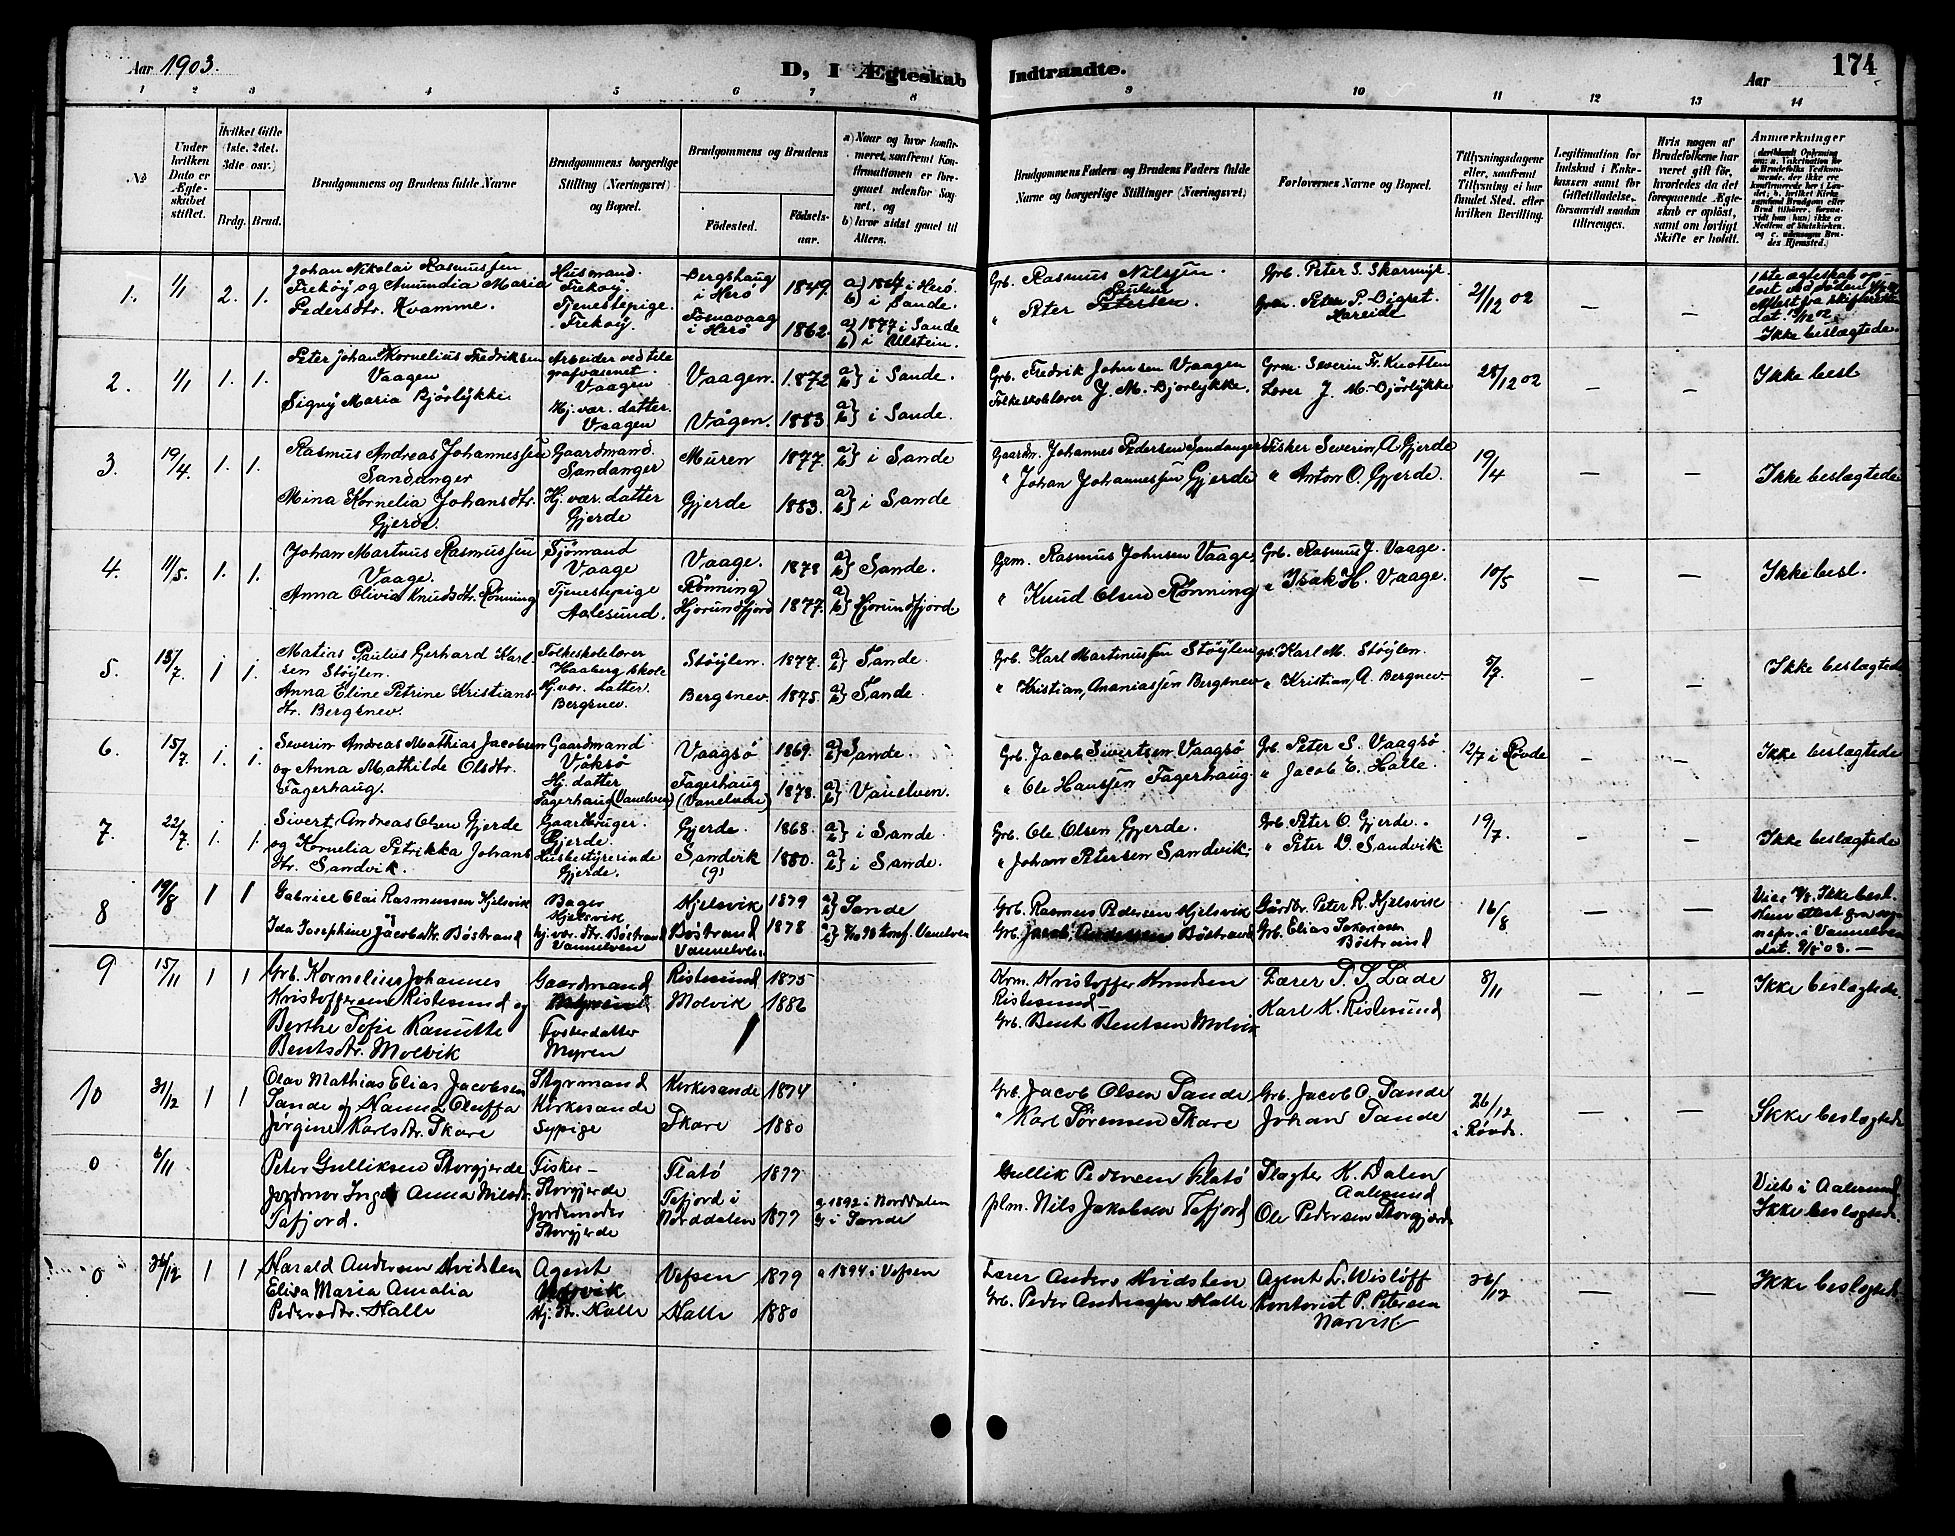 Aar 1903.
D, I Ægteskab Indtraadte.
Aar
174
1 2 3 4 5 6 7 8 9 10 11 12 13 14
No
Under hvilken Dato er Ægteskabet stiftet.
Hvilket Gifte (1ste, 2det, 3dte osv.)
Brdg. Brud.
Brudgommens og Brudens fulde Navne
Brudgommens borgerlige Stilling (Næringsvei) og Bopæl.
Brudgommens og Brudens
Fødested.
Fødselsaar.
a) Naar og hvor konfirmeret, saafremt Konfirmationen er foregaaet udenfor Sognet, og
b) hvor sidst gaaet til Alters.
Brudgommens Faders og Brudens Faders fulde Navne og borgerlige Stillinger (Næringsvei)
Forlovernes Navne og Bopæl.
Tillysningsdagene eller, saafremt Tillysning ei har fundet Sted, efter hvilken Bevilling.
Legitimation for Indskud i Enkekassen samt for Giftetilladelse, forsaavidt saadan tiltrænges.
Hvis nogen af Brudefolkene har været gift før, hvorledes da det foregaaende Ægteskab er opløst, samt om lovligt Skifte er holdt.
Anmærkninger
1. 1/1 2. 1.
Johan Nikolai Rasmussen
Frekøy og Amundia Maria
Pedersdtr. Kvamme.
Husmand.
Frekøy.
Tjenestepige.
Frekøy.
Bergshaug
i Herø 1849.
i Herø 1862.
a) 1864 i Herø
b) i Sande.
a) 1877 i Sande
b) i Ulstein.
Grb. Rasmus Nilsen.
" Peter Paulsen
Petersen.
Grb. Peter S. Skarmyr.
Grm. Peter P. Digret
Hareide
21/12 02
1ste ægteskab opløst ved døden
Attest fra skifteretten
dat. 19/12 02
Ikke beslægtede.
2. 1/1 1. 1.
Peter Johan Kornelius Fredriksen
Vaagen
Signy Maria Bjørlykke.
Arbeider ved telegrafvæsenet.
Vaagen
Hj. vær. datter.
Vaagen
Vaagen. 1872
Vågen. 1883.
a) b) i Sande.
a) b) i Sande.
Grb. Fredrik Johnsen Vaagen
Folkeskolelærer J. M. Bjørlykke.
Grm. Severin Fr. Knotten
Lærer J. M. Bjørlykke
28/12 02
Ikke besl
3. 19/4. 1. 1.
Rasmus Andreas Johannessen
Sandanger
Mina Kornelia Johansdtr.
Gjerde.
Gaardmand.
Sandanger
Hj. vær. datter
Gjerde
Muren 1877.
Gjerde 1883.
a) b) i Sande
a) b) i Sande
Gaardm. Johannes Pedersen Sandanger
" Johan Johannessen Gjerde
Fisker Severin A. Gjerde
" Anton O. Gjerde.
19/4
Ikke beslægtede
4. 11/5. 1. 1.
Johan Martnus Rasmussen
Vaage.
Anna Olivia Knudsdtr. Rønning
Sjømand
Vaage
Tjenestepige
Aalesund.
Vaage. 1878
Rønning
Hjørundfjord 1877.
a) b) Sande.
a) b) Hjørundfjord
Grm. Rasmus Johnsen Vaage.
" Knud Olsen Rønning
Grb. Rasmus J. Vaage.
" Isak H. Vaage.
10/5
Ikke besl.
5. 15/7. 1 1.
Matias Paulus Gerhard Karlsen Støylen.
Anna Eline Petrine Kristiansdtr. Bergsnev.
Folkeskolelærer
Haaberg skole
Hj. vær. datter.
Bergsnev.
Støylen. 1877.
Bergsnev. 1875.
a) b) Sande.
a) b) Sande.
Grb. Karl Martinussen Støylen
" Kristian Ananiassen Bergsnev
Grb. Karl M. Støylen.
" Kristian A. Bergnev
5/7.
Ikke beslægtede
6. 15/7. 1. 1.
Severin Andreas Mathias Jacobsen
og Anna Mathilde Olsdtr.
Fagerhaug.
Gaardmand.
Våksø
Hj. datter
Fagerhaug (Vanelven)
Vaagsø 1869.
Fagerhaug
(Vanelven) 1878.
a) b) Sande.
a) b) Vanelven.
Grb. Jacob Sivertsen Vaagsø
" Ole Hanssen Fagerhaug.
Grb. Peter S. Vaagsø
" Jacob E. Halle.
12/7 i Røvde
Ikke beslægtede
7. 22/7. 1. 1.
Sivert Andreas Olsen Gjerde
og Kornelia Petrikka Johansdtr. Sandvik.
Gaardbruger.
Gjerde.
Husbestyrerinde
Gjerde.
Gjerde. 1868.
Sandvik 1880.
a) b) i Sande.
a) b) i Sande.
Grb. Ole Olsen Gjerde.
" Johan Petersen Sandvik.
Grb. Peter O. Gjerde.
" Peter D. Sandvik
19/7.
Ikke beslægtede
8 19/8 1 1
Gabriel Olai Rasmussen Kjelsvik
Ida Josephine Jacobsdtr. Båstrand
Bager
Kjelsvik
hj. vær. dtr. Båstrand
Vannelven
Kjelsvik 1879
Båstrand 1878
Vannelven
Sande
Grb. Rasmus Pedersen Kjelsvik
Grb. Jacob Andersen Båstrand
Gårdbr. Peter R. Kjelsvik
Grb. Elias Sakariasen
Båstrand
16/8
Ikke besl.
9 15/11 1 1
Grb. Kornelius Johannes
Kristoffersen Ristesund og
Berthe Sofie Kanutte
Bentsdtr. Molvik
Gaardmand
Fosterdatter
Myren
Ristesund 1875
Molvik 1886
Krm. Kristoffer Knudsen
Ristesund
Grb. Bent Bentsen Molvik
Lærer P. S. Lade
Karl K. Ristesund
8/11
Ikke beslægtede.
10 31/12 1 1
Olav Mathias Elias Jacobsen
Sande og Nanna Oluffa
Jørgine Karlsdtr. Skare
Styrmand
Kirkesande
Sypige
Kirkesande 1874
Skare 1880
Grb. Jacob Olsen Sande
" Karl Sørensen Skare
Grb. Jacob O. Sande
Johan Sande
26/12
i Røvde.
Ikke beslægtede
0 6/11
Peter Gulliksen Storgjerde
Jordmor Inga Anna Nilsdtr.
Tafjord.
Fisker -
Storgjerde
Jordemoder
Storgjerde
Flatø 1877
Tafjord i
Norddalen 1877
a 1892 i Norddalen
b) i Sande
Gullik Pedersen Flatø
plm. Nils Jakobsen Tafjord
Slagter K. Dalen
Aalesund
Ole Pedersen Storgjerde
Viet i Aalesund
Ikke beslægtede.
0 26/12 1 1
Harald Andersen Hvidsten
Elisa Maria Amalia
Pedersdtr. Halle
Agent
Narvik
Hj. dtr. Halle
Vefsen 1879
Halle 1880
a 1894 i Vefsen
Lærer Anders Hvidsten
Grb. Peder Andreassen Halle
Agent L. Wisløff
Kontorist P. Petersen
Narvik.
26/12
Ikke beslægtede